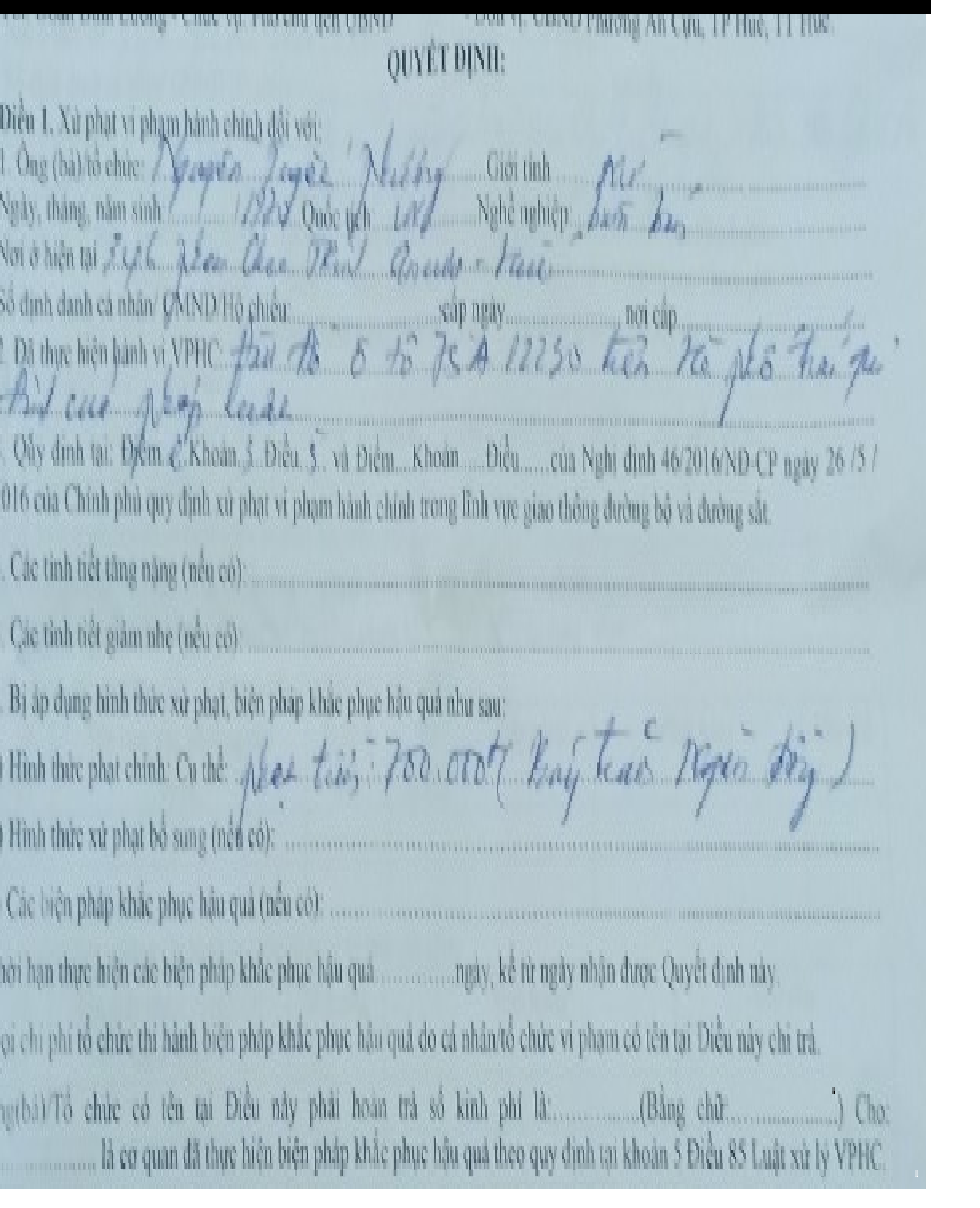 Chức vụ: Phó chủ tịch UBND - Đơn vị: UBND Phường An Cựu, TP Huế, TT Huế.
QUYẾT ĐỊNH:
Điều 1. Xử phạt vi phạm hành chính đối với:
1. Ông (bà)/tổ chức: Nguyễn Giới tính Nữ
Ngày, tháng, năm sinh Quốc tịch VN Nghề nghiệp buôn bán
Nơi ở hiện tại Huế
Số định danh cá nhân/ CMND/Hộ chiếu: cấp ngày nơi cấp
2. Đã thực hiện hành vi VPHC: đỗ ô tô 75A 12250 trên hè phố trái qui
định của pháp luật
. Qủy định tại: Điểm e Khoản 3 Điều 5 và Điểm...Khoản....Điều......của Nghị định 46/2016/NĐ-CP ngày 26 /5 /
016 của Chính phủ quy định xử phạt vi phạm hành chính trong lĩnh vực giao thông đường bộ và đường sắt.
. Các tình tiết tăng nặng (nếu có):
. Các tình tiết giảm nhẹ (nếu có):
. Bị áp dụng hình thức xử phạt, biện pháp khắc phục hậu quả như sau:
) Hình thức phạt chính: Cụ thể: phạt tiền: 700.000đ ( Bảy trăm ngàn đồng )
) Hình thức xử phạt bổ sung (nếu có):
Các biện pháp khắc phục hậu quả (nếu có):
hời hạn thực hiện các biện pháp khắc phục hậu quả..............ngày, kể từ ngày nhận được Quyết định này.
ọi chi phí tổ chức thi hành biện pháp khắc phục hậu quả do cá nhân/tổ chức vi phạm có tên tại Điều này chi trả.
ng(bà)/Tổ chức có tên tại Điều này phải hoàn trả số kinh phí là:..............(Bằng chữ:..................) Cho:
là cơ quan đã thực hiện biện pháp khắc phục hậu quả theo quy định tại khoản 5 Điều 85 Luật xử lý VPHC.